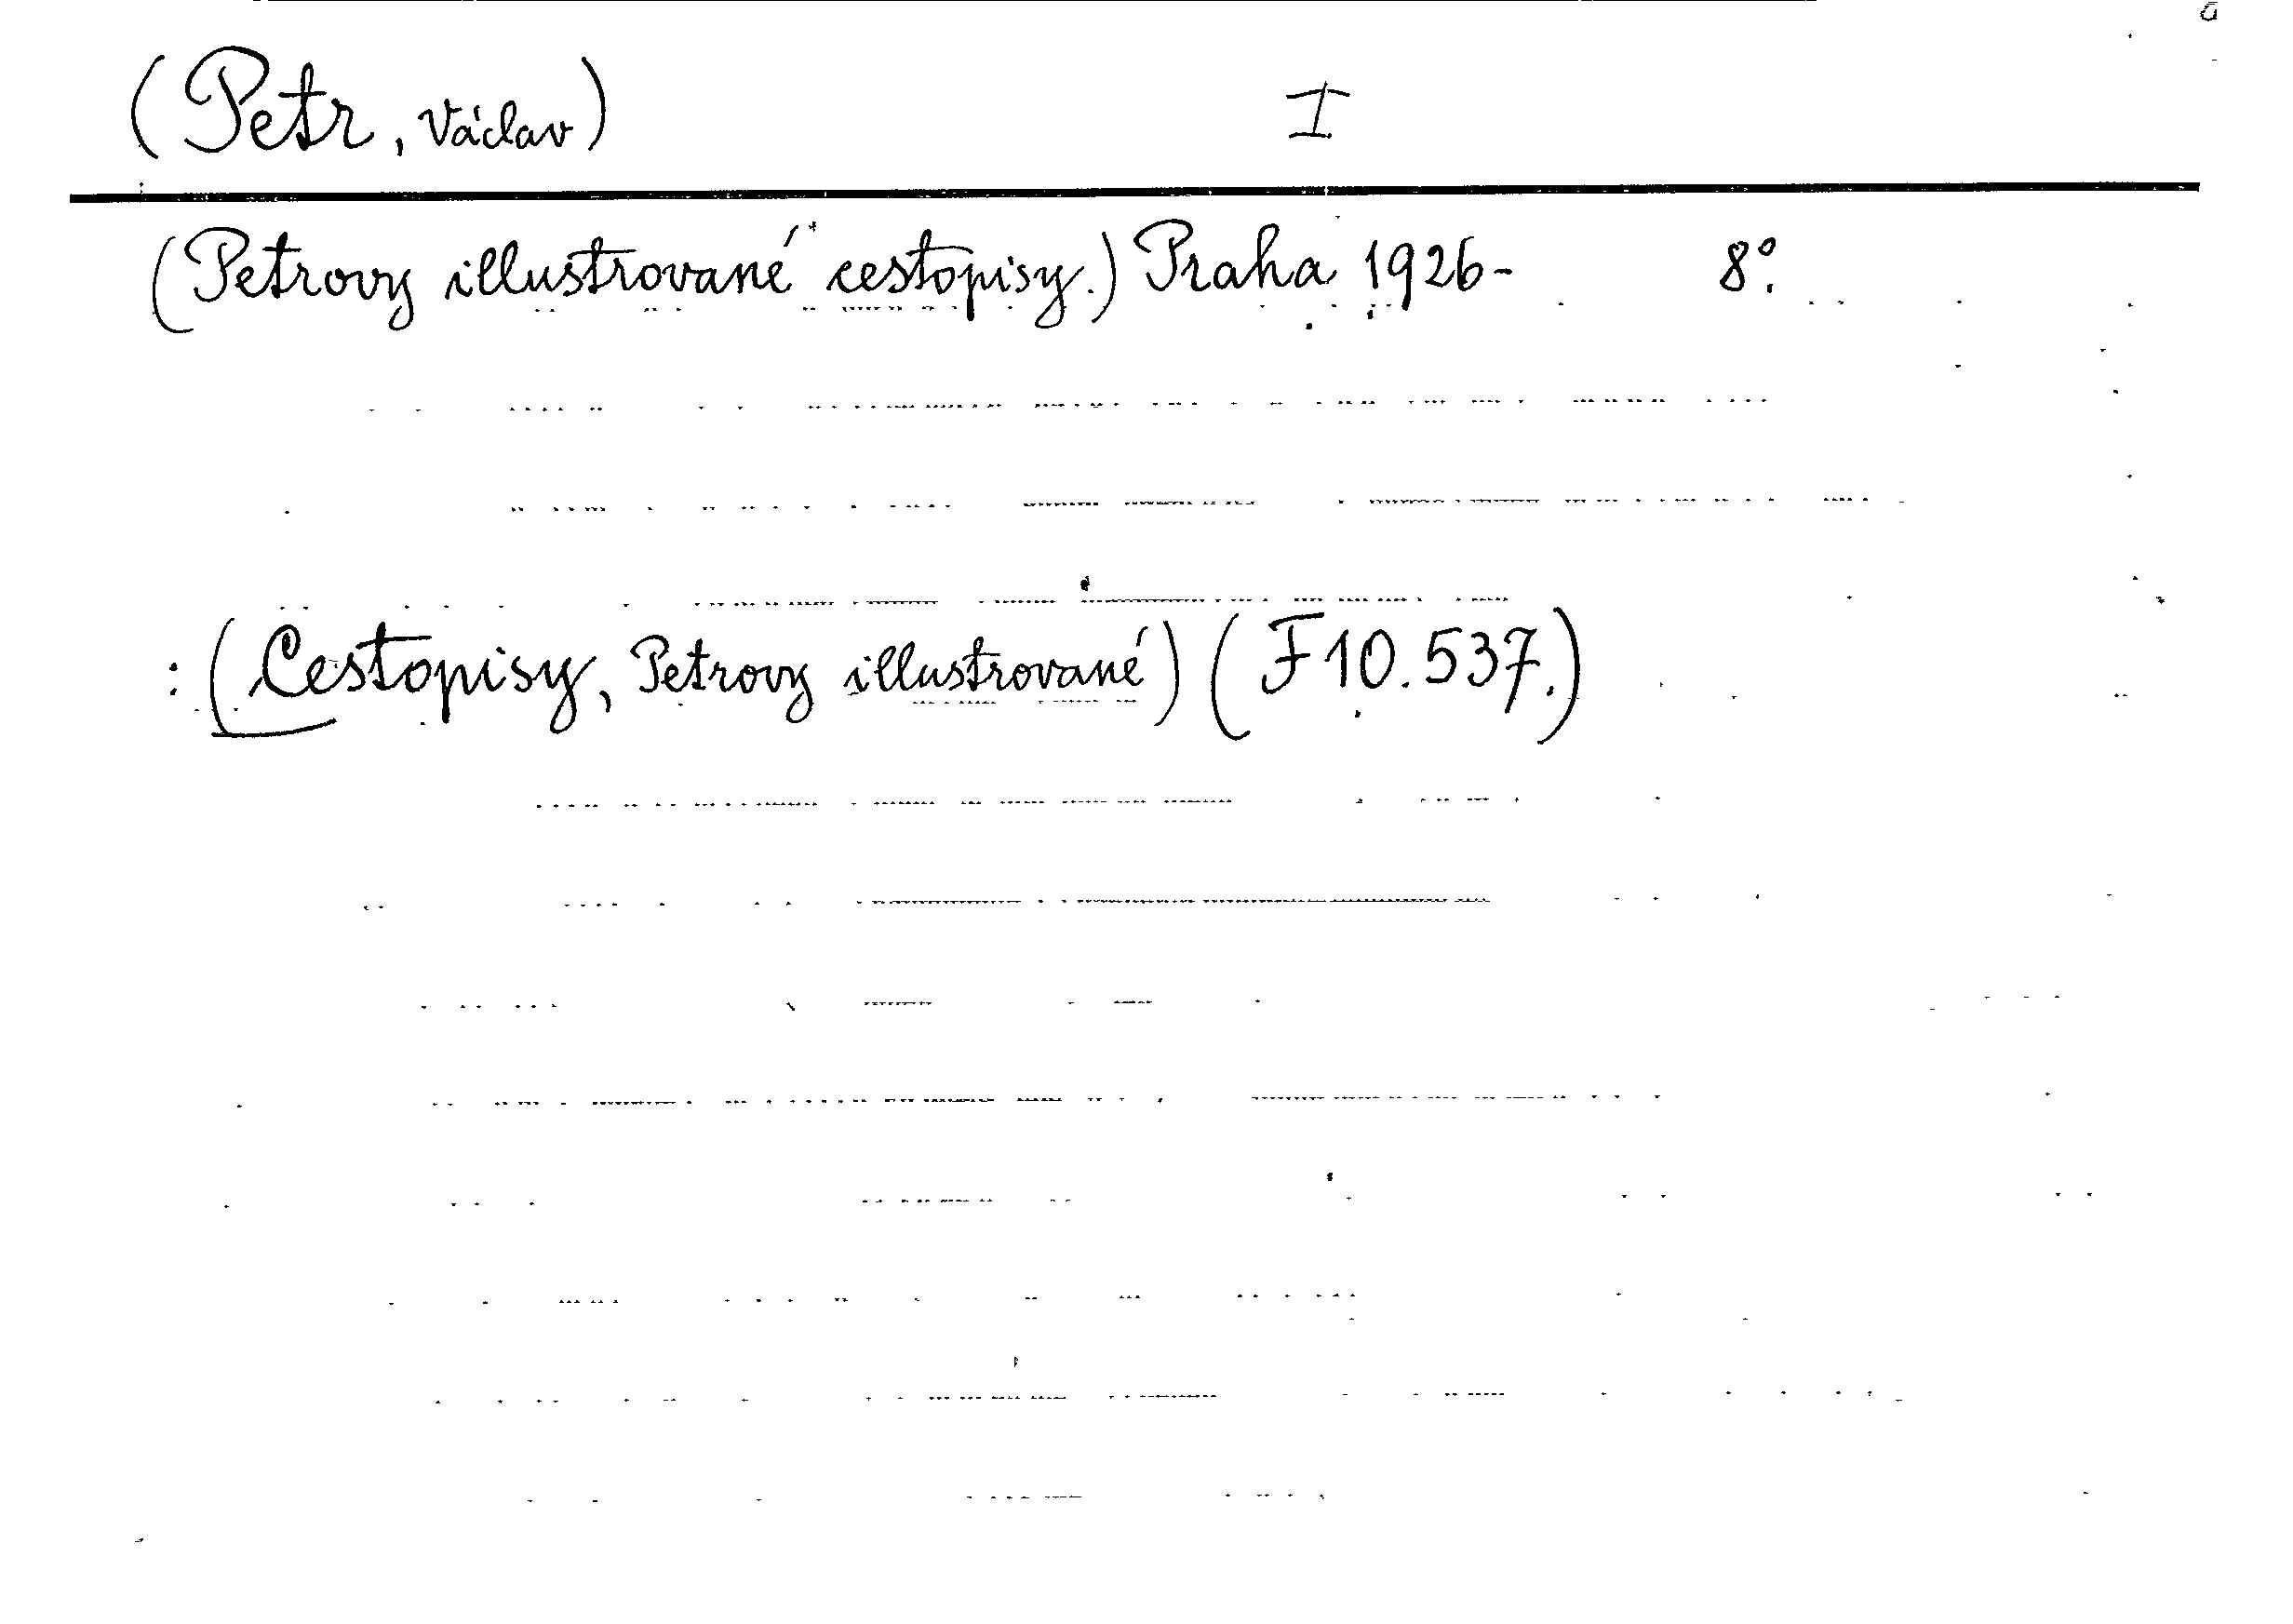 (Petr, Václav) I
(Petrovy illustrované cestopisy.) Praha 1926- 8°.
: (Cestopisy, Petrovy illustrované) (F10.537.)